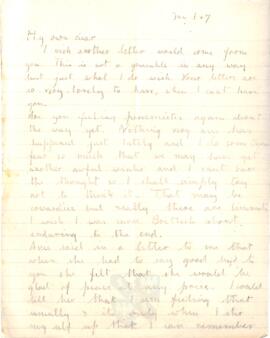 My own dear
I wish another letter would come from
you. This is not a grumble in any way
but just what I do wish. Your letters are
so very lovely to have, when I can't have
you.
Are you feeling pessimistic again about
the way yet. Nothing very has
happened just lately and I do
fear so much that we may have yet
another awful winter and I can't bear
the thought so I shall simply try
not to think it. That may be
cowardice but really there are
I wish I was more British about
enduring to the end.
said in a letter to me that
when she had to say good bye to
you she felt that she would be
glad of peace at any price. I could
tell her that I am feeling that
usually & its only when I
myself up that I can remember